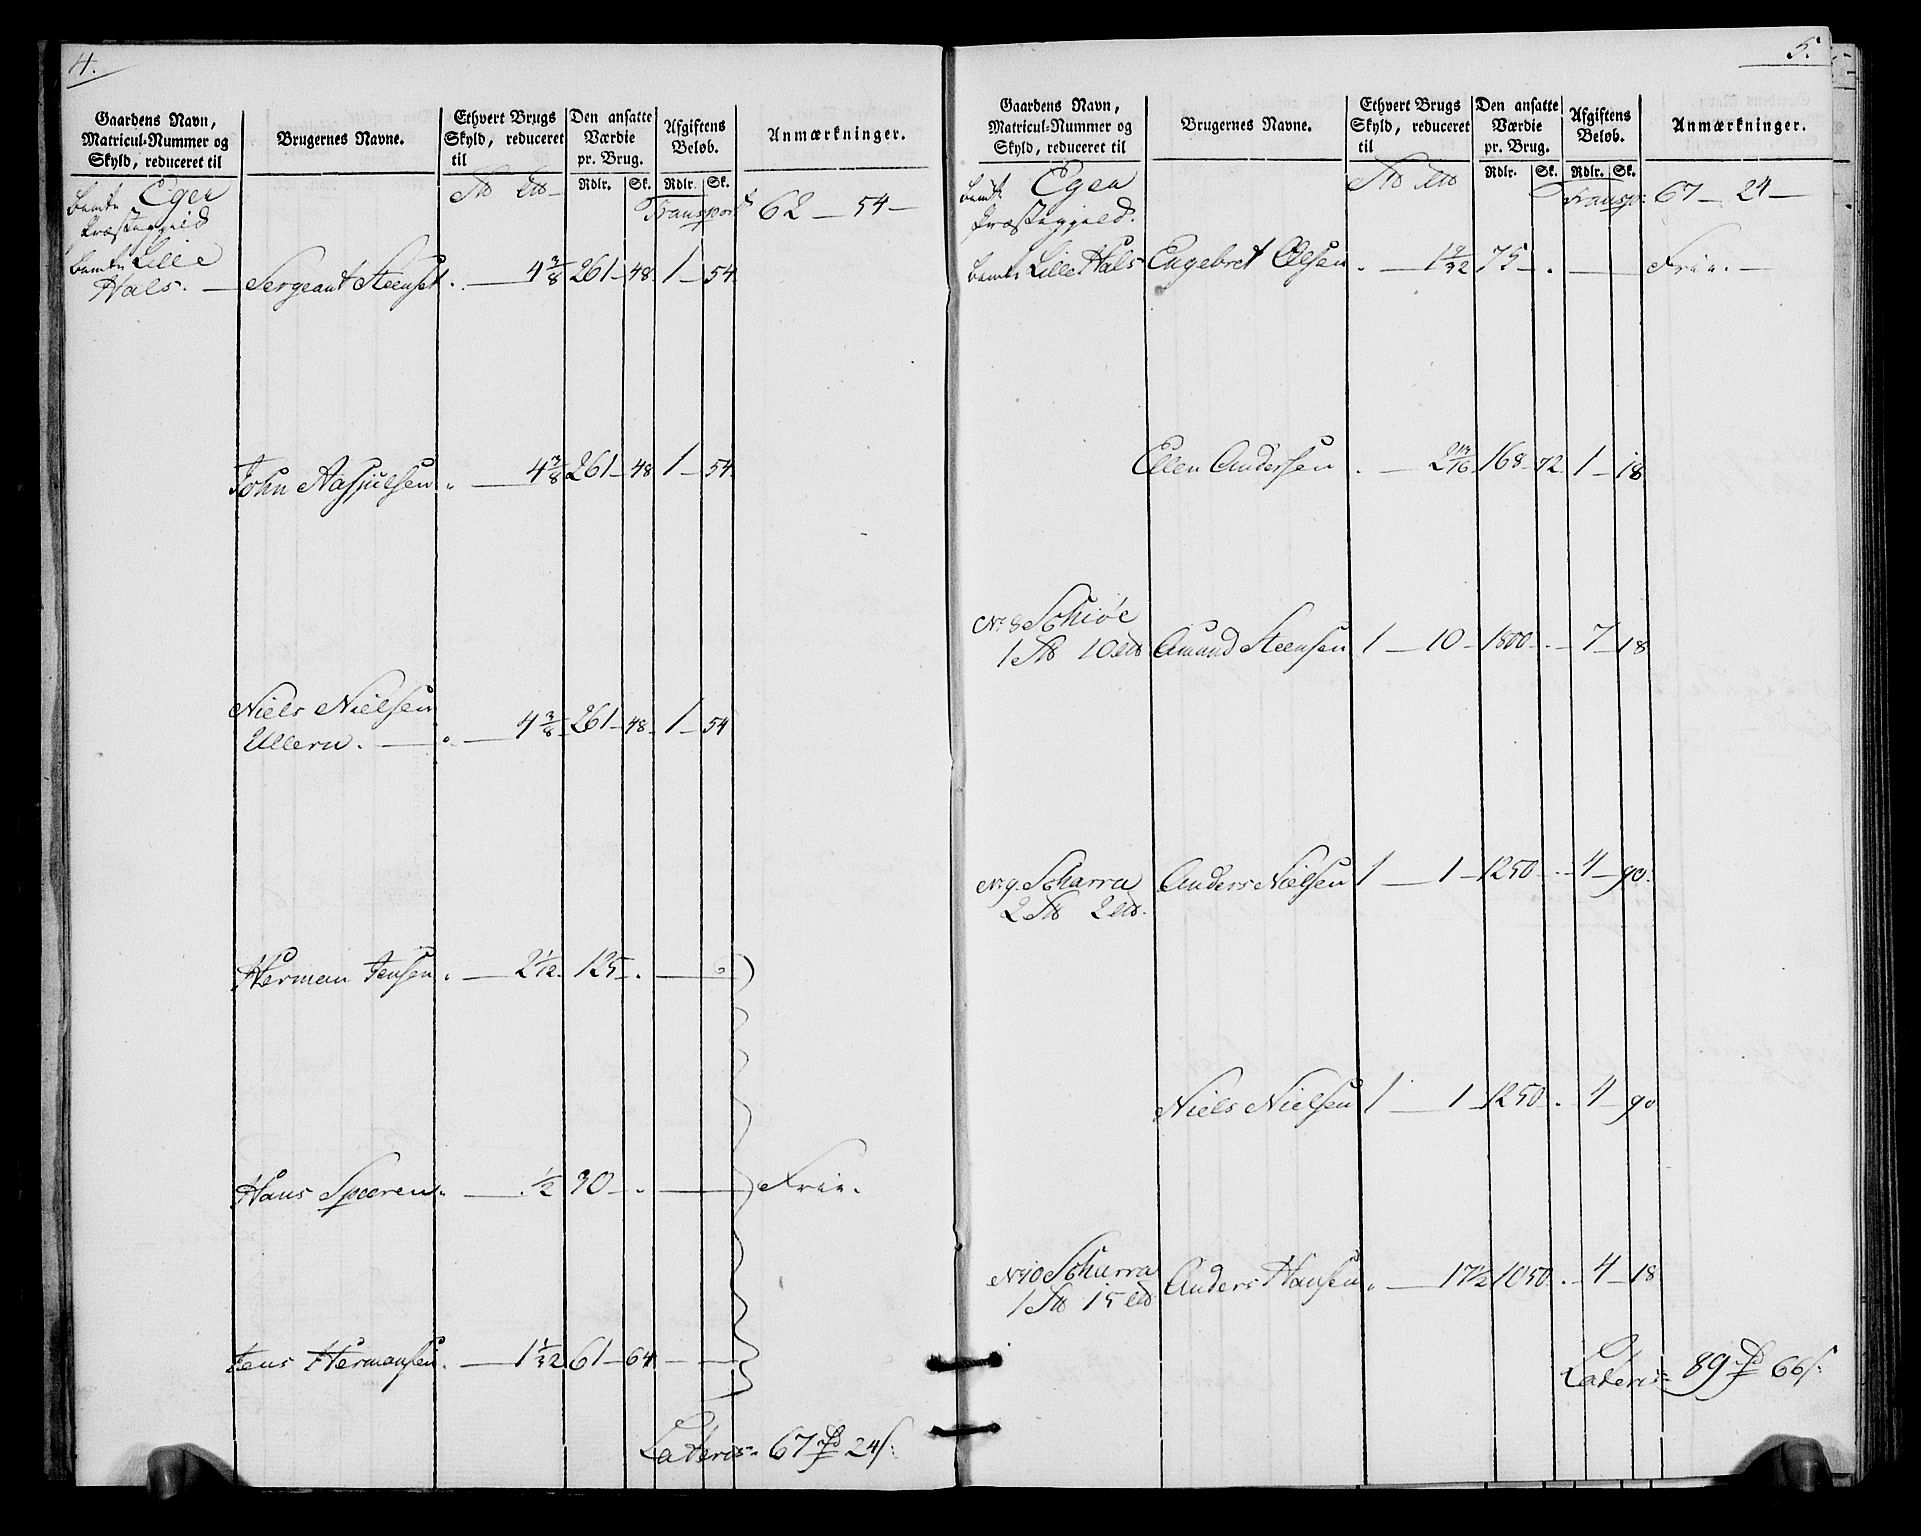 4.
Gaardens Navn, Matricul-Nummer og Skyld, reduceret til
Brugernes Navne.
Ethvert Brugs Skyld, reduceret til
Den ansatte Værdie pr. Brug.
Afgiftens Beløb.
Anmærkninger.
Rdlr. Sk. Rdlr. Sk.
bemte Egen Præstegield
Transport 62 — 54 —
bemte Lille Hals. — Sergeant Steenset . — 4 3/8 261 — 48 1 — 54
John Aasjulsen . — 4 3/8 261 — 48 1 — 54
Niels Nielsen
Ullern . — 4 3/8 261 — 48 1 54
Herman Jensen . — 2 1/12 125 — .
Hans Spæren . — . 1/2 30 — . — Frie.
Jens Hermansen . — 1 1/32 61 — 64 — —
Lateris 67 Rd 24 s:
5.
Gaardens Navn, Matricul-Nummer og Skyld, reduceret til
Brugernes Navne.
Ethvert Brugs Skyld, reduceret til
Den ansatte Værdie pr. Brug.
Afgiftens Beløb.
Anmærkninger.
Rdlr. Sk. Rdlr. Sk.
bemte Egen Præstegjeld.
Transp: 67 — 24 —
bemte Lille Hals Engebret Olsen . — 75 — . — Frie. —
Ellen Andersen . — 2 13/16 168 — 72 1 — 18
No 8 Schiøe
1 Amund Steensen 1 — 10 — 1800 — . — 7 — 18
No 9. Scharra Anders Nielsen 1 — 1 — 1250 . — 4 — 90.
Niels Nielsen 1 — 1 — 1250 . 4 — 90
No 10 Scharra Anders Hansen . — 17 1/2 1050 . — 4 — 18
Lateris 89 Rd 66 s: